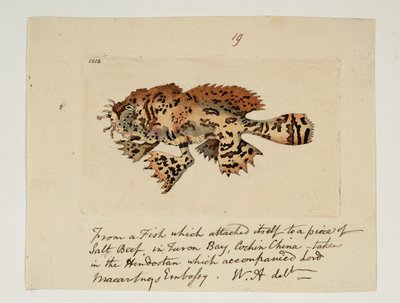 19
1012
From a Fish which attached itself to a piece of
Salt Beef in Turon Bay, Cochin China - taken
in the Hindostan which accompanied Lord
Macartneys Embassy. W. A delt